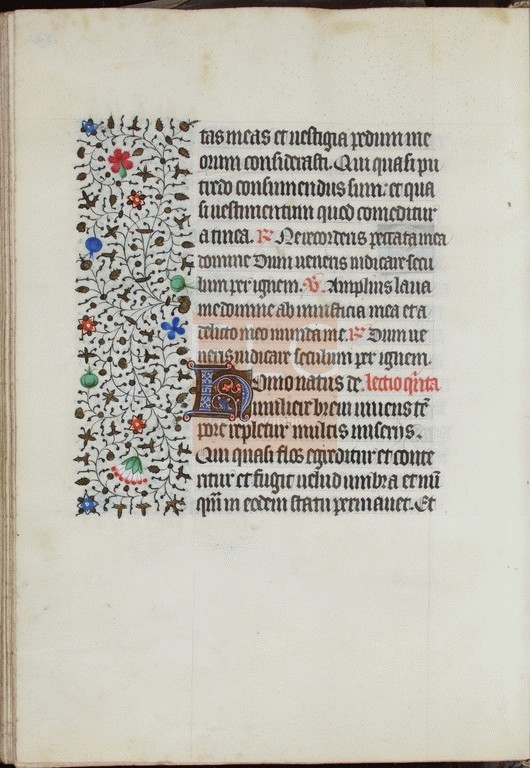 tas meas et uestigia pedum me
orum considerasti. Qui quasi pu
tredo consumendus sum: et qua
si uestimentum quod comeditur
a tinea. R Ne recorderis peccata mea
domine Dum ueneris iudicare secu
lum per ignem. V. Amplius laua
me domine ab iniusticia mea et a
delicto meo munda me. R Dum ue
neris iudicare seculum per ignem.
Homo natus de lectio qnta
muliere breui uiuens tē
pore repletur multis miseriis.
Qui quasi flos egreditur et conte
ritur et fugit uelud umbra et nū
qm in eodem statu permanet. Et